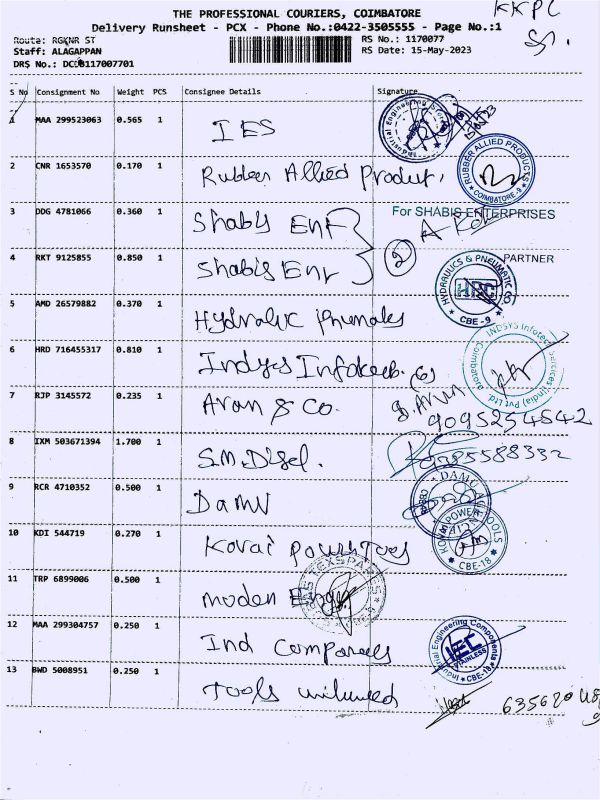 THE PROFESSIONAL COURIERS, COIMBATORE
KKPC
Delivery Runsheet - PCX - Phone No.:0422-3505555 - Page No.:1
Route: RGKNR ST
RS No.: 1170077
Staff: ALAGAPPAN
RS Date: 15-May-2023
DRS No.:
S No Consignment No Weight PCS Consignee Details Signature
1 MAA 299523063 0.565 1 IES
2 CNR 1653570 0.170 1 Rubber Allied Product,
RUBBER ALLIED PRODUCTS
COIMBATORE-9
3 DDG 4781066 0.360 1 Shabis Ent
For SHABIS ENTERPRISES
4 RKT 9125855 0.850 1 Shabis Ent
2
PARTNER
HYDRAULICS & PNEUMATIC
HPC
CBE-9
5 AMD 26579882 0.370 1 Hydralic
6 HRD 716455317 0.810 1 Indys Infoteeb. (6)
INDSYS Infotech Services (India) Pvt Ltd.
Coimbatore
7 RJP 3145572 0.235 1 Aran & Co.
D. Arun
9095254542
8 IXM 503671394 1.700 1 S.M. Disel.
9385588332
9 RCR 4710352 0.500 1 Damu
DAMU
10 KDI 544719 0.270 1 Kovai
KOVAI POWER TOOLS
CBE-18
11 TRP 6899006 0.500 1 Moden
TEXSPARES
12 MAA 299304757 0.250 1 Ind
Industrial Engineering Components
IEC
STAINLESS
CBE-18
13 BWD 5008951 0.250 1 Tools
635620